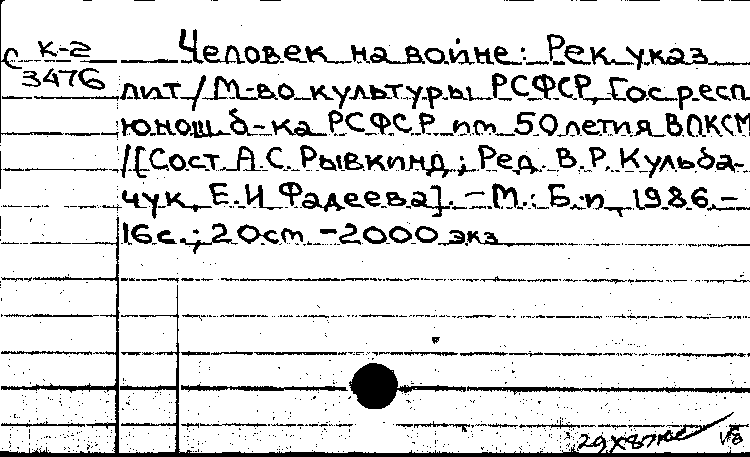 С К-2
3476
Человек на войне: Рек. указ.
лит / М-во культуры РСФСР, Гос респ
юнош. б-ка РСФСР им 50летия ВЛКСМ
/[Сост А.С. Рывкинд; Ред. В.Р. Кульба-
чук, Е.И Фадеева]. – М.: Б.и, 1986. –
16с.; 20см – 2000 экз